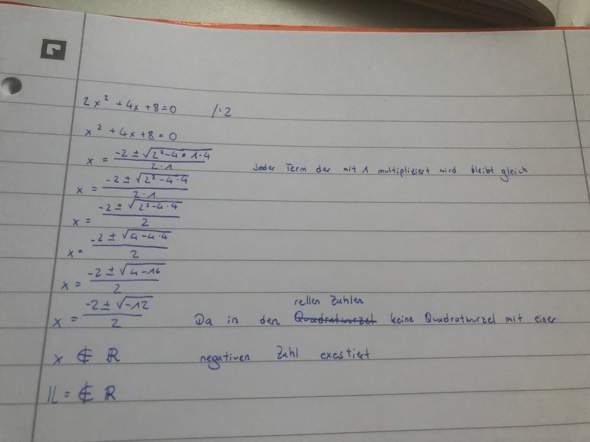 2x² + 4x + 8 = 0 /:2
x² + 4x + 8 = 0
x = (-2 ± √(2²-4·1·4))/(2·1) Jeder Term der mit 1 multipliziert wird bleibt gleich
x = (-2 ± √(2²-4·4))/(2·1)
x = (-2 ± √(2²-4·4))/2
x = (-2 ± √(4-4·4))/2
x = (-2 ± √(4-16))/2
rellen Zahlen
x = (-2 ± √(-12))/2 Da in den Quadratwurzel keine Quadratwurzel mit einer
x ∉ ℝ negativen Zahl exestiert
𝕃 = ∉ ℝ